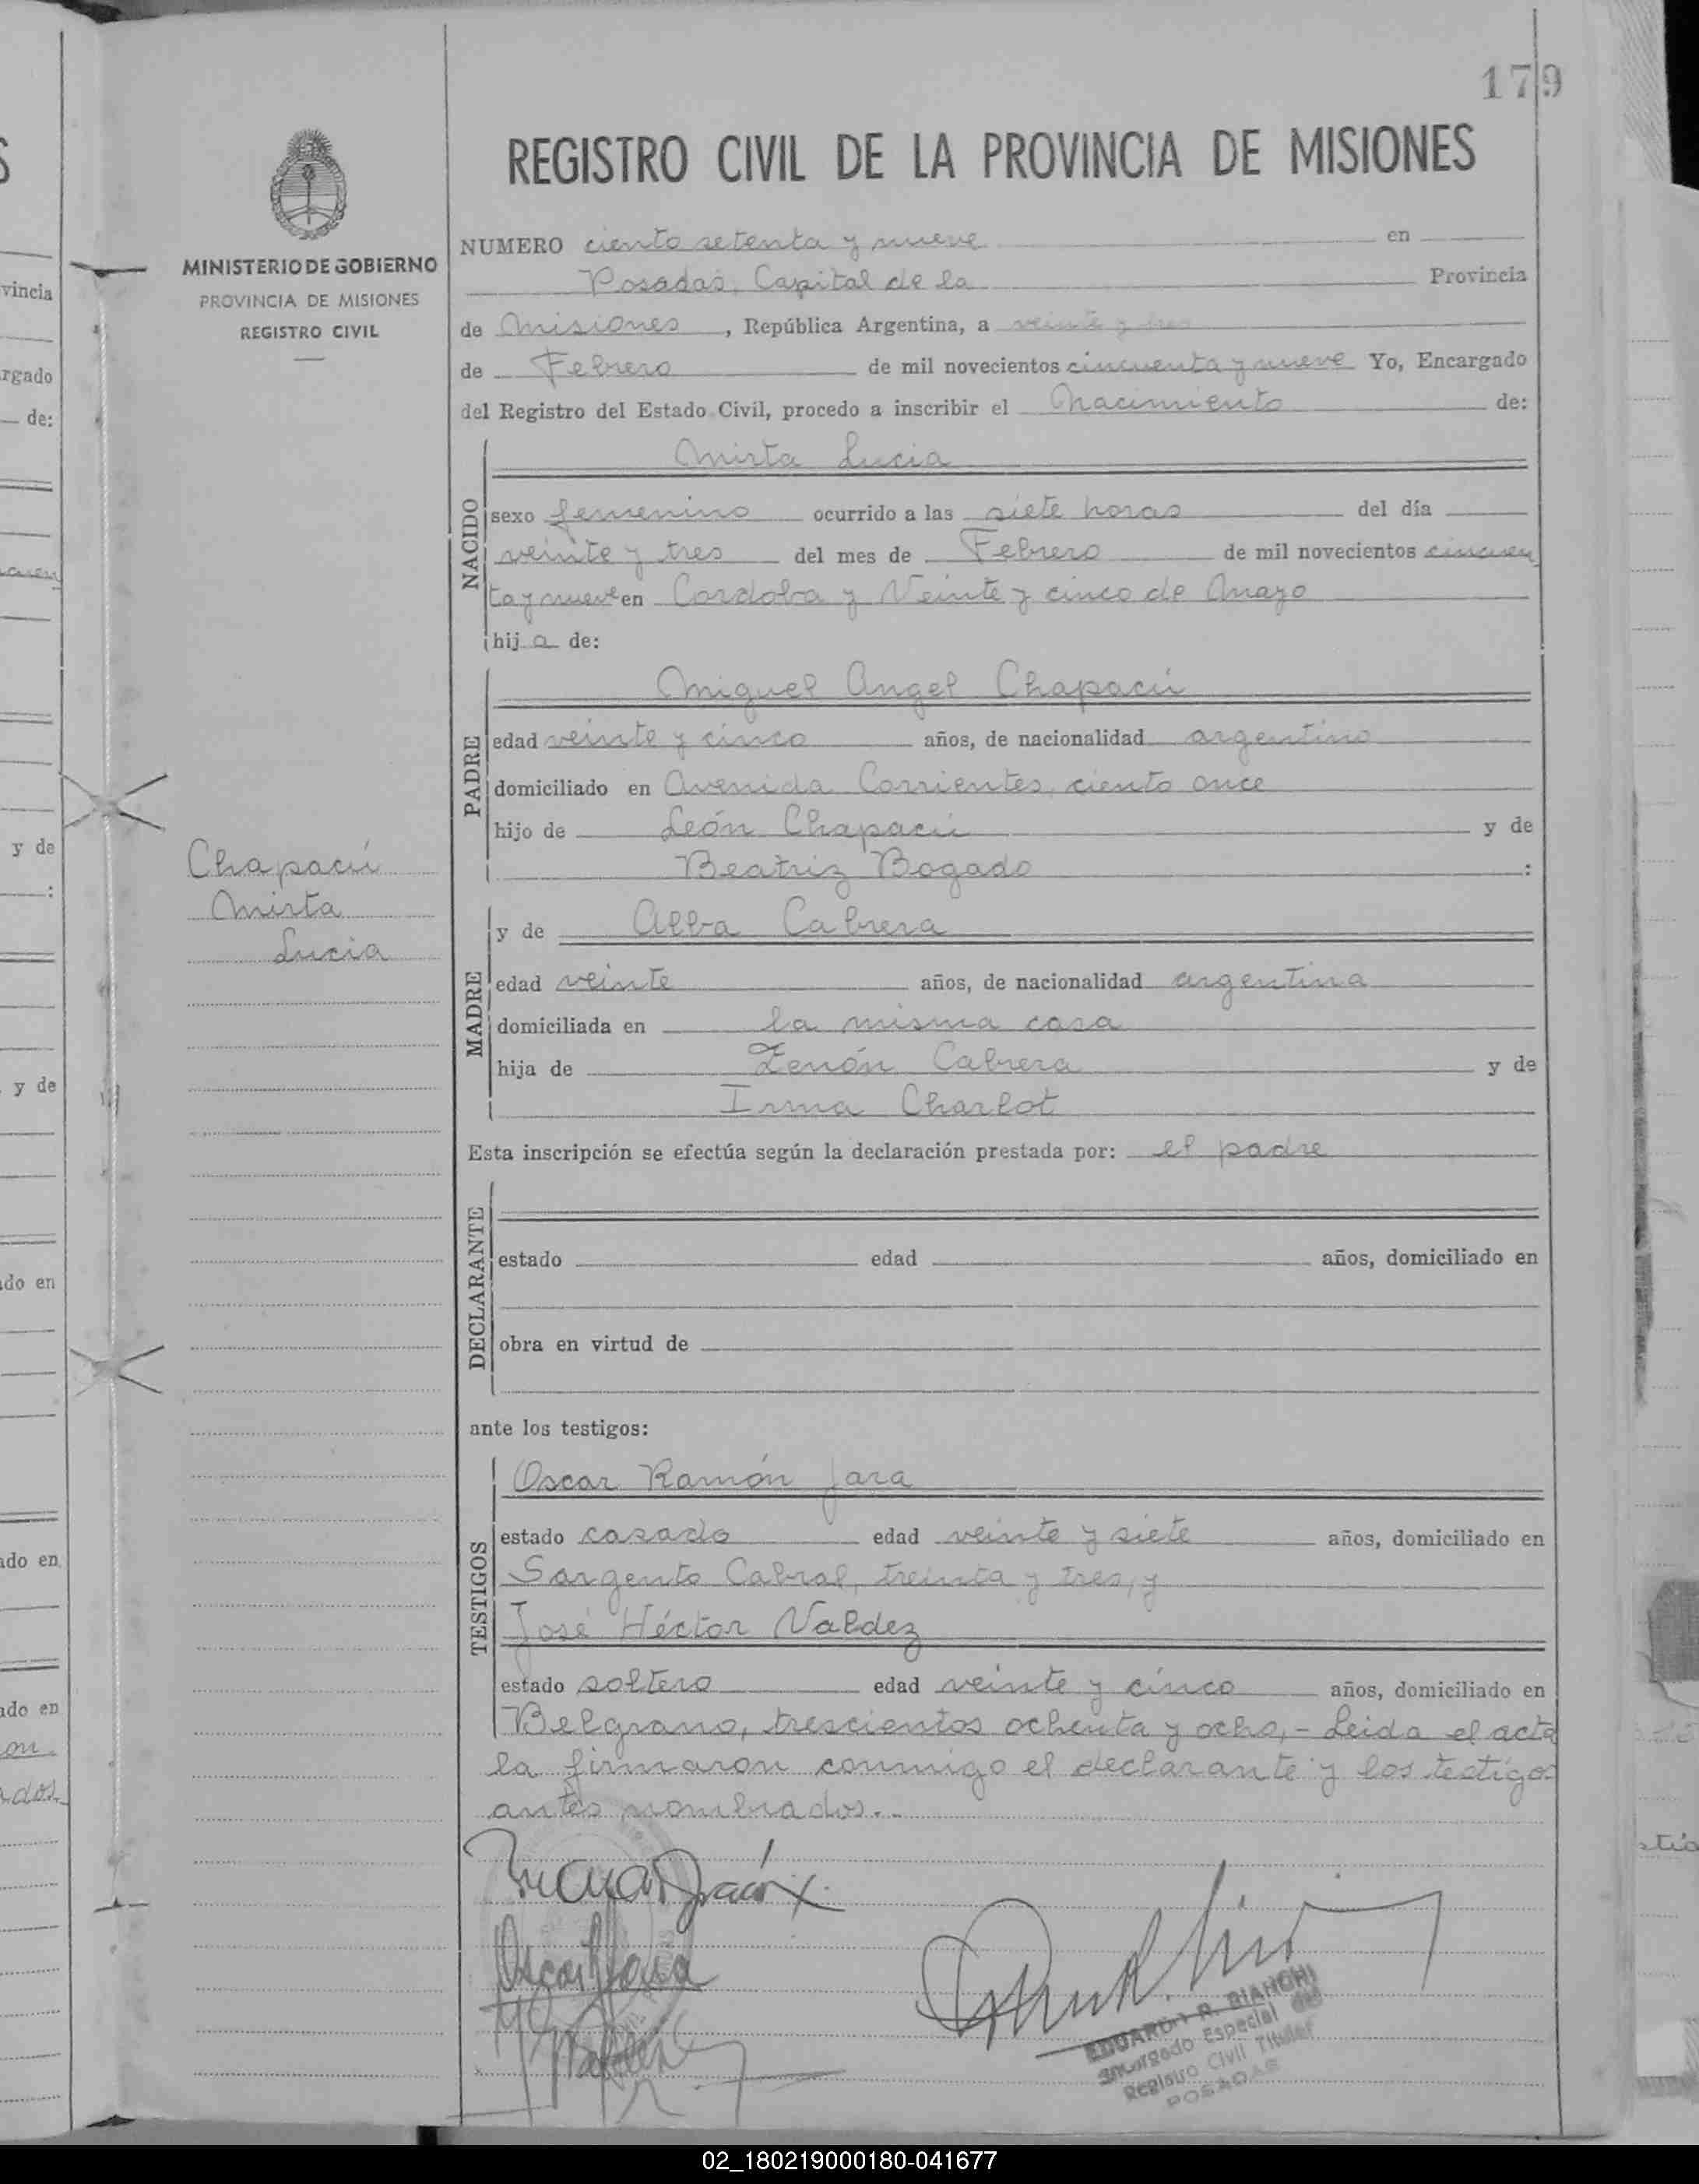 179
REGISTRO CIVIL DE LA PROVINCIA DE MISIONES
MINISTERIO DE GOBIERNO
PROVINCIA DE MISIONES
REGISTRO CIVIL
NUMERO ciento setenta y nueve en
Posadas, Capital de la Provincia
de Misiones, República Argentina, a veinte y tres
de Febrero de mil novecientos cincuenta y nueve Yo, Encargado
del Registro del Estado Civil, procedo a inscribir el Nacimiento de:
NACIDO
Mirta Lucia
sexo femenino ocurrido a las siete horas del día
veinte y tres del mes de Febrero de mil novecientos cincuen
ta y nueve en Cordoba y Veinte y cinco de Mayo
hija de:
PADRE
Miguel Angel Chapacú
edad veinte y cinco años, de nacionalidad argentino
domiciliado en Avenida Corrientes, ciento once
hijo de León Chapacú y de
Beatriz Bogado:
Chapacú
Mirta
Lucia
MADRE
y de Alba Cabrera
edad veinte años, de nacionalidad argentina
domiciliada en la misma casa
hija de Zenón Cabrera y de
Irma Charlot
Esta inscripción se efectúa según la declaración prestada por: el padre
DECLARANTE
estado edad años, domiciliado en
obra en virtud de
ante los testigos:
TESTIGOS
Oscar Ramón Jara
estado casado edad veinte y siete años, domiciliado en
Sargento Cabral, treinta y tres, y
José Héctor Valdez
estado soltero edad veinte y cinco años, domiciliado en
Belgrano, trescientos ochenta y ocho,- Leida el acta
la firmaron conmigo el declarante y los testigos
antes nombrados.-
Oscar R Jara
EDUARDO R. BIANCHI
Encargado Especial del
Registro Civil Titular
POSADAS
02_180219000180-041677